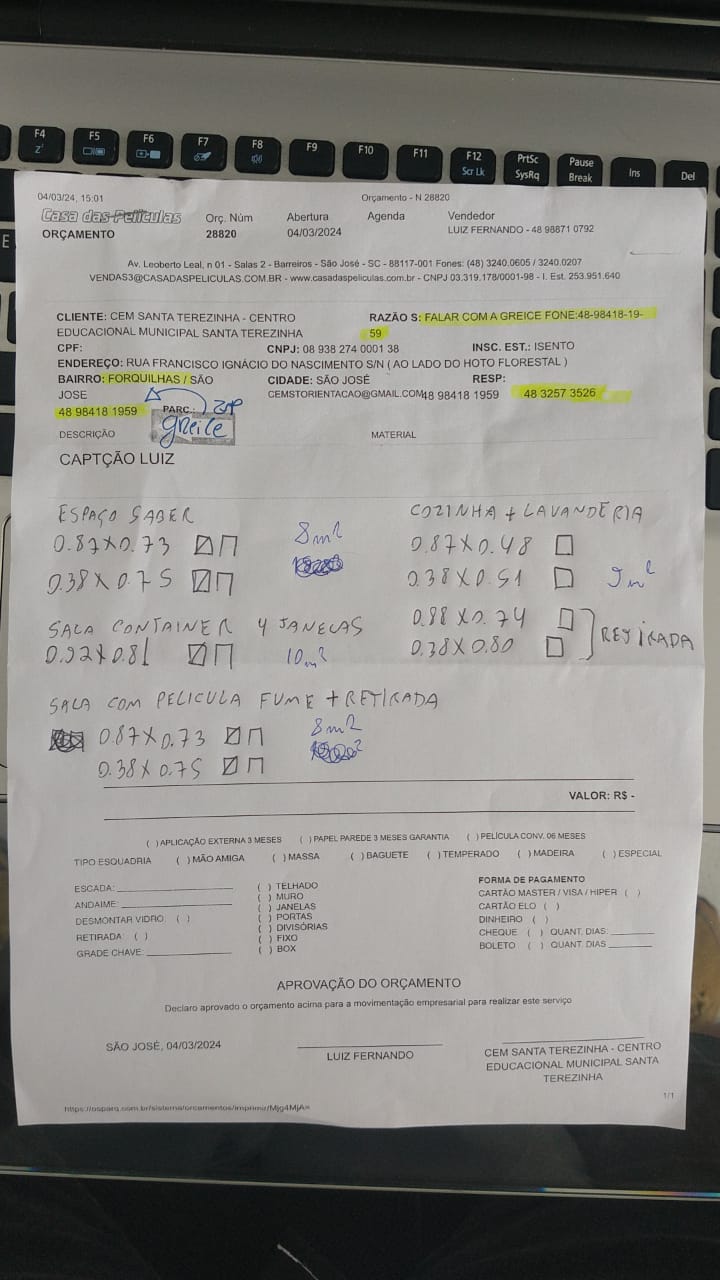 F4 F5 F6 F7 F8 F9 F10 F11 F12 PrtSc Pause Ins Del
Z Scr Lk SysRq Break
E
04/03/24, 15:01 Orçamento - N 28820
Casa das Películas Orç. Núm Abertura Agenda Vendedor
ORÇAMENTO 28820 04/03/2024 LUIZ FERNANDO - 48 98871 0792
Av. Leoberto Leal, n 01 - Salas 2 - Barreiros - São José - SC - 88117-001 Fones: (48) 3240.0605 / 3240.0207
VENDAS3@CASADASPELICULAS.COM.BR - www.casadaspeliculas.com.br - CNPJ 03.319.178/0001-98 - I. Est. 253.951.640
CLIENTE: CEM SANTA TEREZINHA - CENTRO RAZÃO S: FALAR COM A GREICE FONE:48-98418-19-
EDUCACIONAL MUNICIPAL SANTA TEREZINHA 59
CPF: CNPJ: 08 938 274 0001 38 INSC. EST.: ISENTO
ENDEREÇO: RUA FRANCISCO IGNÁCIO DO NASCIMENTO S/N ( AO LADO DO HOTO FLORESTAL )
BAIRRO: FORQUILHAS / SÃO CIDADE: SÃO JOSÉ RESP:
JOSE CEMSTORIENTACAO@GMAIL.COM 48 98418 1959 48 3257 3526
48 98418 1959 PARC.: ZAP
greice
DESCRIÇÃO MATERIAL
CAPTÇÃO LUIZ
ESPAÇO SABER COZINHA + LAVANDERIA
0.87X0.73 8m² 0.87X0.48
0.38X0.75 0.38X0.51 9m²
SALA CONTAINER 4 JANELAS 0.88X0.74
0.92X0.81 10m² 0.38X0.80 RETIRADA
SALA COM PELICULA FUME + RETIRADA
0.87X0.73 8m²
0.38X0.75
VALOR: R$ -
( ) APLICAÇÃO EXTERNA 3 MESES ( ) PAPEL PAREDE 3 MESES GARANTIA ( ) PELÍCULA CONV. 06 MESES
TIPO ESQUADRIA ( ) MÃO AMIGA ( ) MASSA ( ) BAGUETE ( ) TEMPERADO ( ) MADEIRA ( ) ESPECIAL
ESCADA: ( ) TELHADO FORMA DE PAGAMENTO
ANDAIME: ( ) MURO CARTÃO MASTER / VISA / HIPER ( )
DESMONTAR VIDRO: ( ) ( ) JANELAS CARTÃO ELO ( )
RETIRADA: ( ) ( ) PORTAS DINHEIRO ( )
GRADE CHAVE: ( ) DIVISÓRIAS CHEQUE ( ) QUANT. DIAS:
( ) FIXO BOLETO ( ) QUANT. DIAS
( ) BOX
APROVAÇÃO DO ORÇAMENTO
Declaro aprovado o orçamento acima para a movimentação empresarial para realizar este serviço
SÃO JOSÉ, 04/03/2024 LUIZ FERNANDO CEM SANTA TEREZINHA - CENTRO
EDUCACIONAL MUNICIPAL SANTA
TEREZINHA
1/1
https://osparq.com.br/sistema/orcamentos/imprimir/Mjg4MjA=